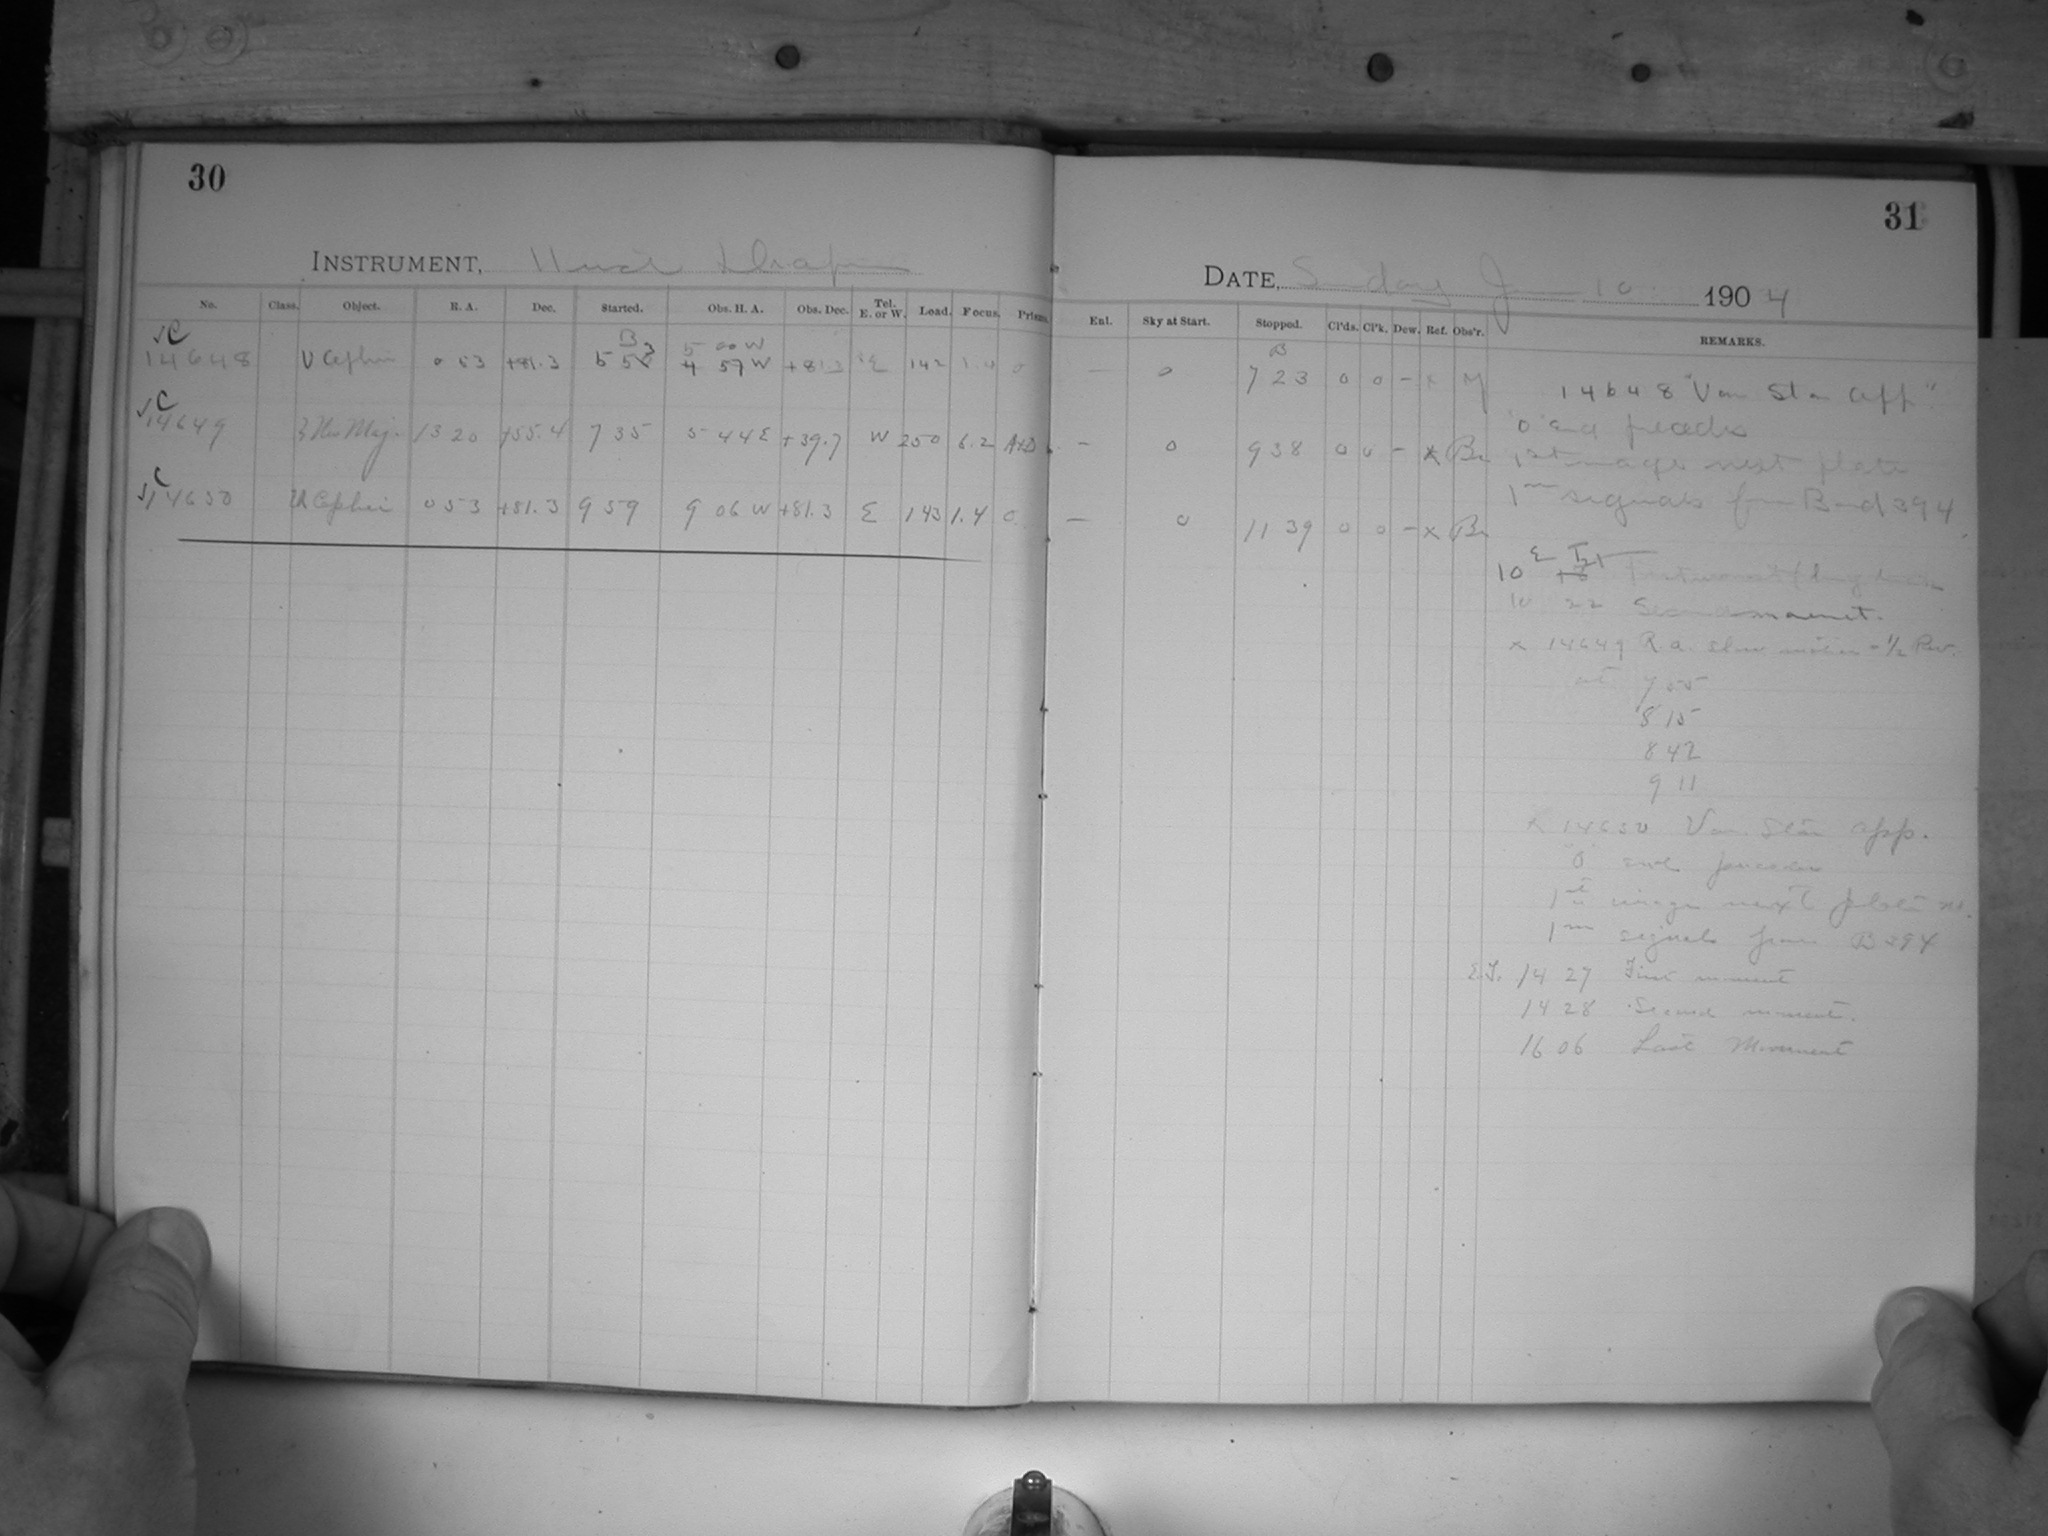 30
INSTRUMENT,
No. Class. Object. R. A. Dec. Started. Obs. H. A. Obs. Dec. Tel. E. or W. Load. Focus. Prisms.
JC
B
14648 U Cephei 0 53 +81.3 5 53 5 00 W 4 57 W +81.3 E 142 1.4 0
JC
14649 13 20 +55.4 7 35 5 44 E +39.7 W 250 6.2
JC
14650 U Cephei 0 53 +81.3 9 59 9 06 W +81.3 E 143 1.4 0
31
DATE, Sunday Jan 10 1904
Enl. Sky at Start. Stopped. Cl'ds. Cl'k. Dew. Ref. Obs'r. REMARKS.
B
— 0 7 23 0 0 – x M
— 0 9 38 0 0 – x Br
— 0 11 39 0 0 – x Br
14648 "Var Star App"
"0" end precedes
1st image next plate
1m signals from Bond 394
10 22 Second movement.
x 14649 R.a. slow motion – 1/2 Rev.
at 7 55
8 15
8 42
9 11
x 14650 Var. Star App.
0 end precedes
1st image next plate
1m signals from B 394
E.T. 14 27 First movement
14 28 Second movement.
16 06 Last Movement